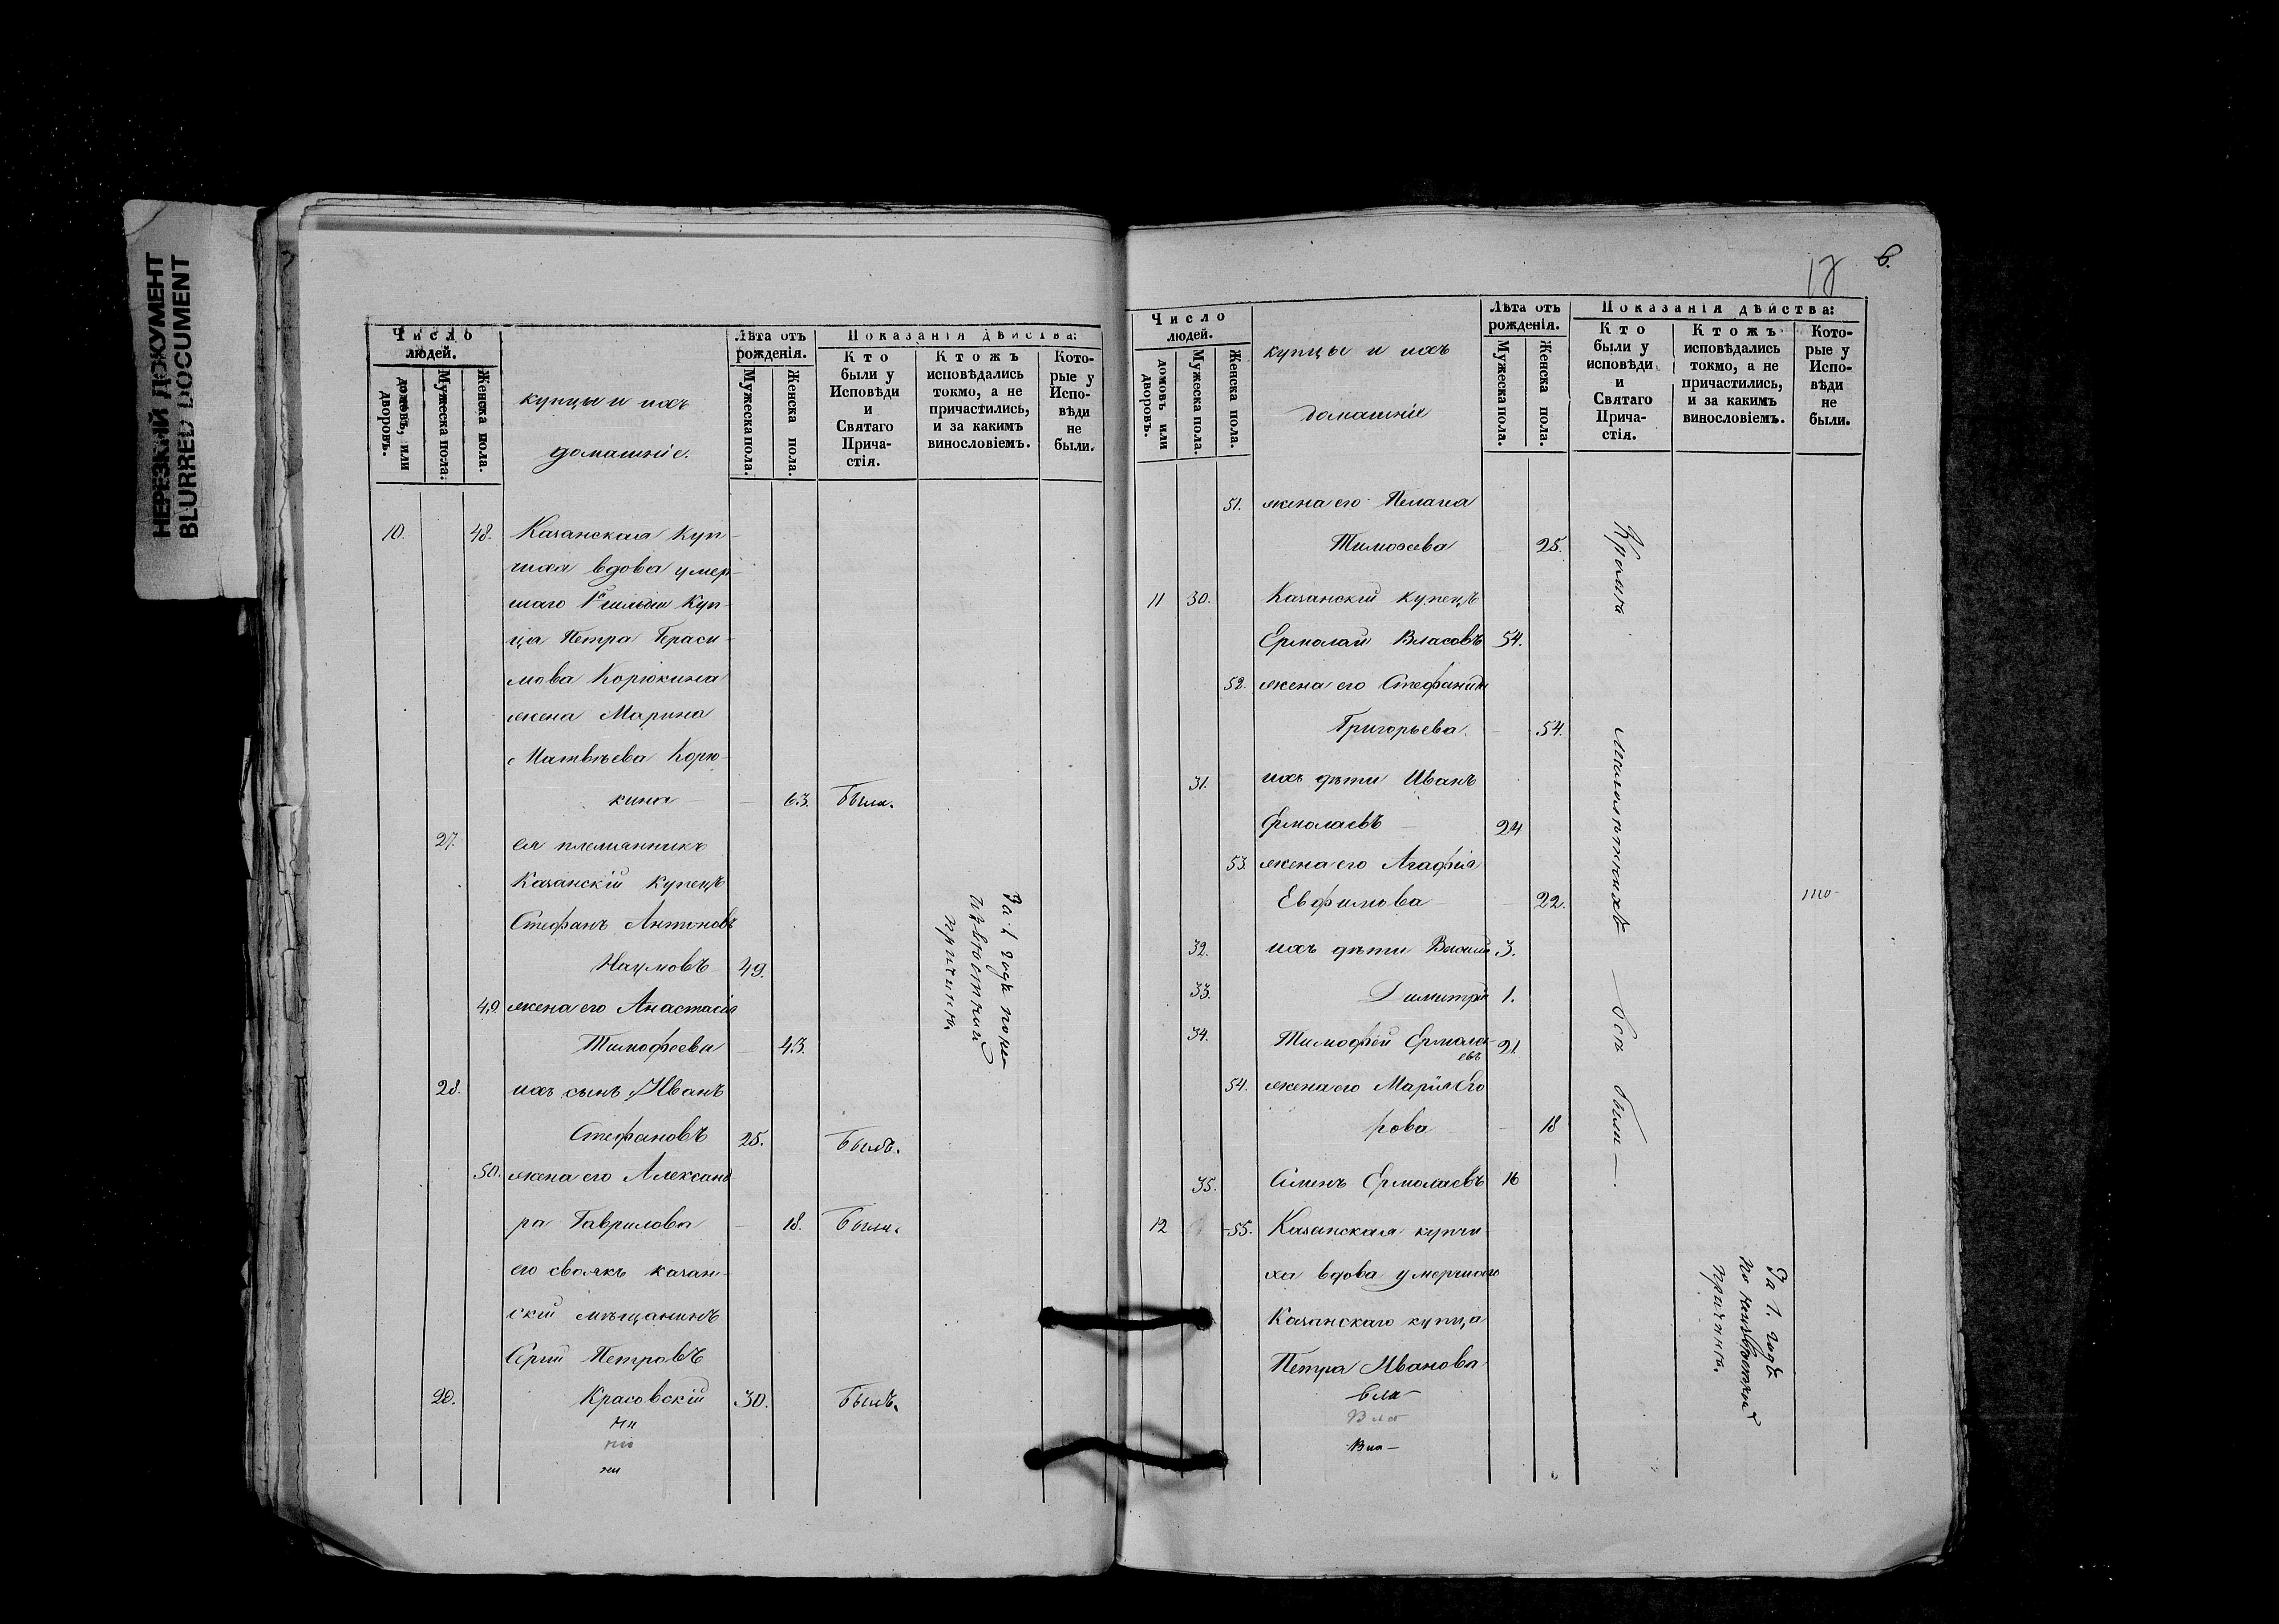 НЕРЕЗКИЙ ДОКУМЕНТ
BLURRED DOCUMENT
Число
людей.
домовъ, или
дворовъ.
Мужеска пола.
Женска пола.
купцы и ихъ
домашніе.
Лѣта отъ
рожденія.
Мужеска пола.
Женска пола.
Показанія дѣйства:
Кто
были у
Исповѣди
и
Святаго
Прича-
стія.
Ктожъ
исповѣдались
токмо, а не
причастились,
и за какимъ
винословіемъ.
Кото-
рые у
Испо-
вѣди
не
были.
10. 48. Казанская Куп-
чиха вдова умер-
шаго 1й гильдіи Куп-
ца Петра Гераси-
мова Корюкина
жена Марина
Матвѣева Корю-
кина 63. Была.
27. ея племянникъ
Казанскій Купецъ
Стефанъ Антоновъ
Наумовъ 49.
49. жена его Анастасія
Тимофеева 43.
За 1 годъ по не-
извѣстной
причинѣ.
28. ихъ сынъ Иванъ
Стефановъ 25. Былъ.
50. жена его Александ-
ра Гаврилова 18. Была.
его своякъ казан-
скій мѣщанинъ
Сергій Петровъ
29. Красовскій 30. Былъ.
17 6.
Число
людей.
домовъ или
дворовъ.
Мужеска пола.
Женска пола.
купцы и ихъ
домашніе
Лѣта отъ
рожденія.
Мужеска пола.
Женска пола.
Показанія дѣйства:
Кто
были у
исповѣди
и
Святаго
Прича-
стія.
Ктожъ
исповѣдались
токмо, а не
причастились,
и за какимъ
винословіемъ.
Кото-
рые у
Испо-
вѣди
не
были.
51. жена его Пелагея
Тимофеева 25.
11 30. Казанскій купецъ
Ермолай Власовъ 54.
52. жена его Стефанида
Григорьева 54.
31. ихъ дѣти Иванъ
Ермолаевъ 24
53. жена его Агафія
Евфимова 22.
32. ихъ дѣти Василій 3.
33. Димитрій 1.
34. Тимофей Ермола-
евъ 21.
54. жена его Марія Его
рова 18
35. Симеонъ Ермолаевъ 16
Кромѣ малолѣтнихъ всѣ были
12 55. Казанская купчи-
ха вдова умершаго
Казанскаго купца
Петра Иванова
За 1. годъ
по неизвѣстной
причинѣ.